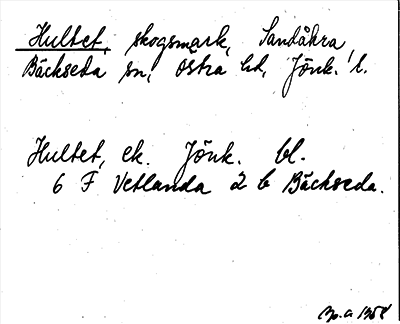 Hultet, skogsmark, Sandåkra,
Bäckseda sn, Östra hd, Jönk. l.
Hultet, ek. Jönk. bl.
6 F Vetlanda 2 b Bäckseda.
1958